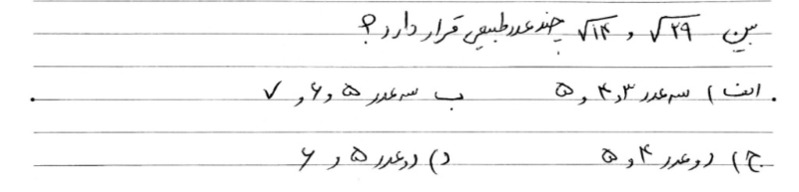 بین √۲۹ و √۱۴ چند عدد طبیعی قرار دارد؟
الف) سه عدد ۳ و ۴ و ۵ ب سه عدد ۵ و ۶ و ۷
ج) دو عدد ۴ و ۵ د) دو عدد ۵ و ۶